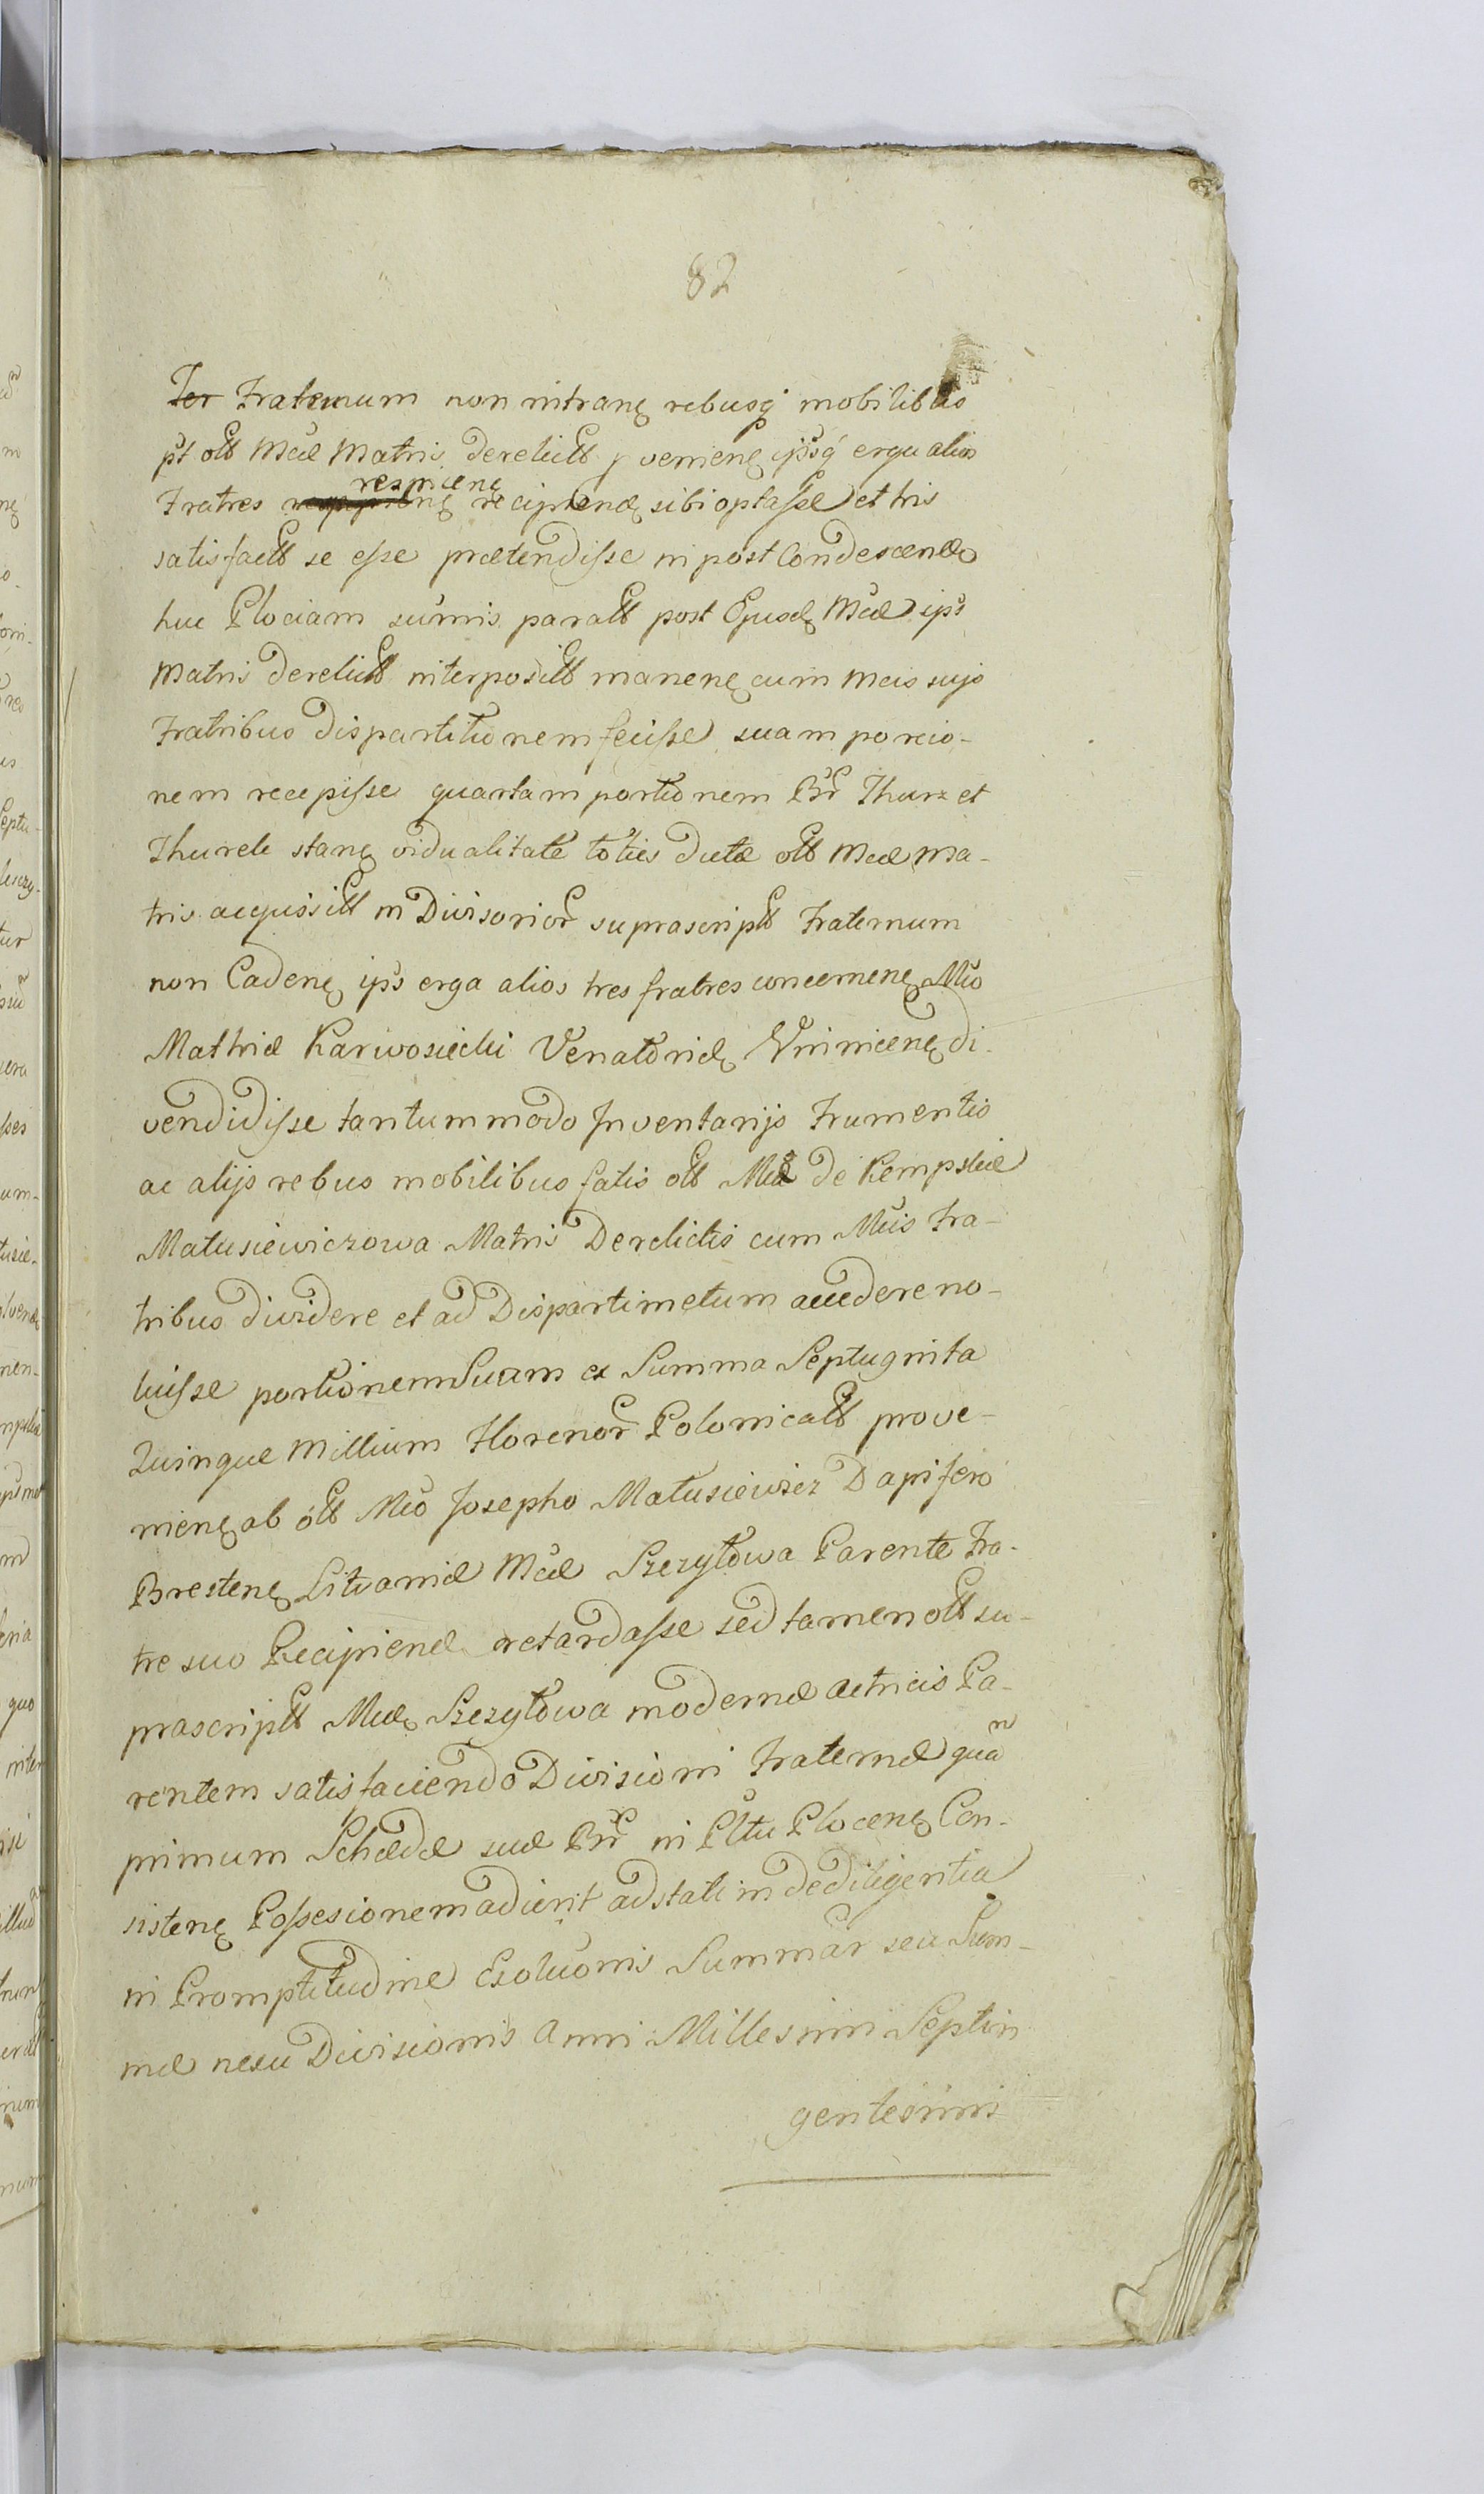 82
Ter Fraternum non intranę rebusq̃ mobilibus
pt olb Mcæ Matris derelictb p venienę ipsq̃ erga alios
respicienę
Fratres recipiendę sibi optasse et his
satisfactb se esse prætendisse in post Condescendę
huc Plociam sumis paratb post Ejusdę Mcæ ips
Matris derelictb interpositb manenę cum Mcis sujs
Fratribus dispartitionem fecisse suam porcio-
nem recepisse quartam portionem Br̃ Thurz et
Thurele stanę vidualitate toties dictæ olb Mcæ Ma-
tris acquisitb in Divisorior̃ suprascriptb Fraternum
non Cadenę ips erga alios tres fratres concernenę Mco
Mathiæ Karwosiecki Venatoridę Vrinicenę di-
vendidisse tantummodo Inventarijs Frumentis
ac alijs rebus mobilibus satis olb Mcæ de Kempskie
Matusiewiczowa Matris Derelictis cum Mcis Fra-
tribus dividere et ad Dispartimetum accedere no-
luisse portionem Suam ex Summa Septuginta
Quinque Millium Florenor̃ Polonicalb prove-
nienę ab olb Mco Josepho Matusiewicz Dapifero
Brestenę Litvaniæ Mcæ Szczytowa Parente Fra-
tre suo Recipiend retardasse sed tamen olb su-
prascriptb Mcæ Szczytowa modernæ actricis Pa-
rentem satisfaciendo Divisioni Fraternæ quam
primum Schedæ suæ Br̃ in Pltu Plocenę Con-
sistenę Possesionem adierit adstatim de diligentia
in Promptitudine Exoluonis Summar̃ seu Sum-
mæ nexu Divisionis Anni Millesimi Septin
gentesimi